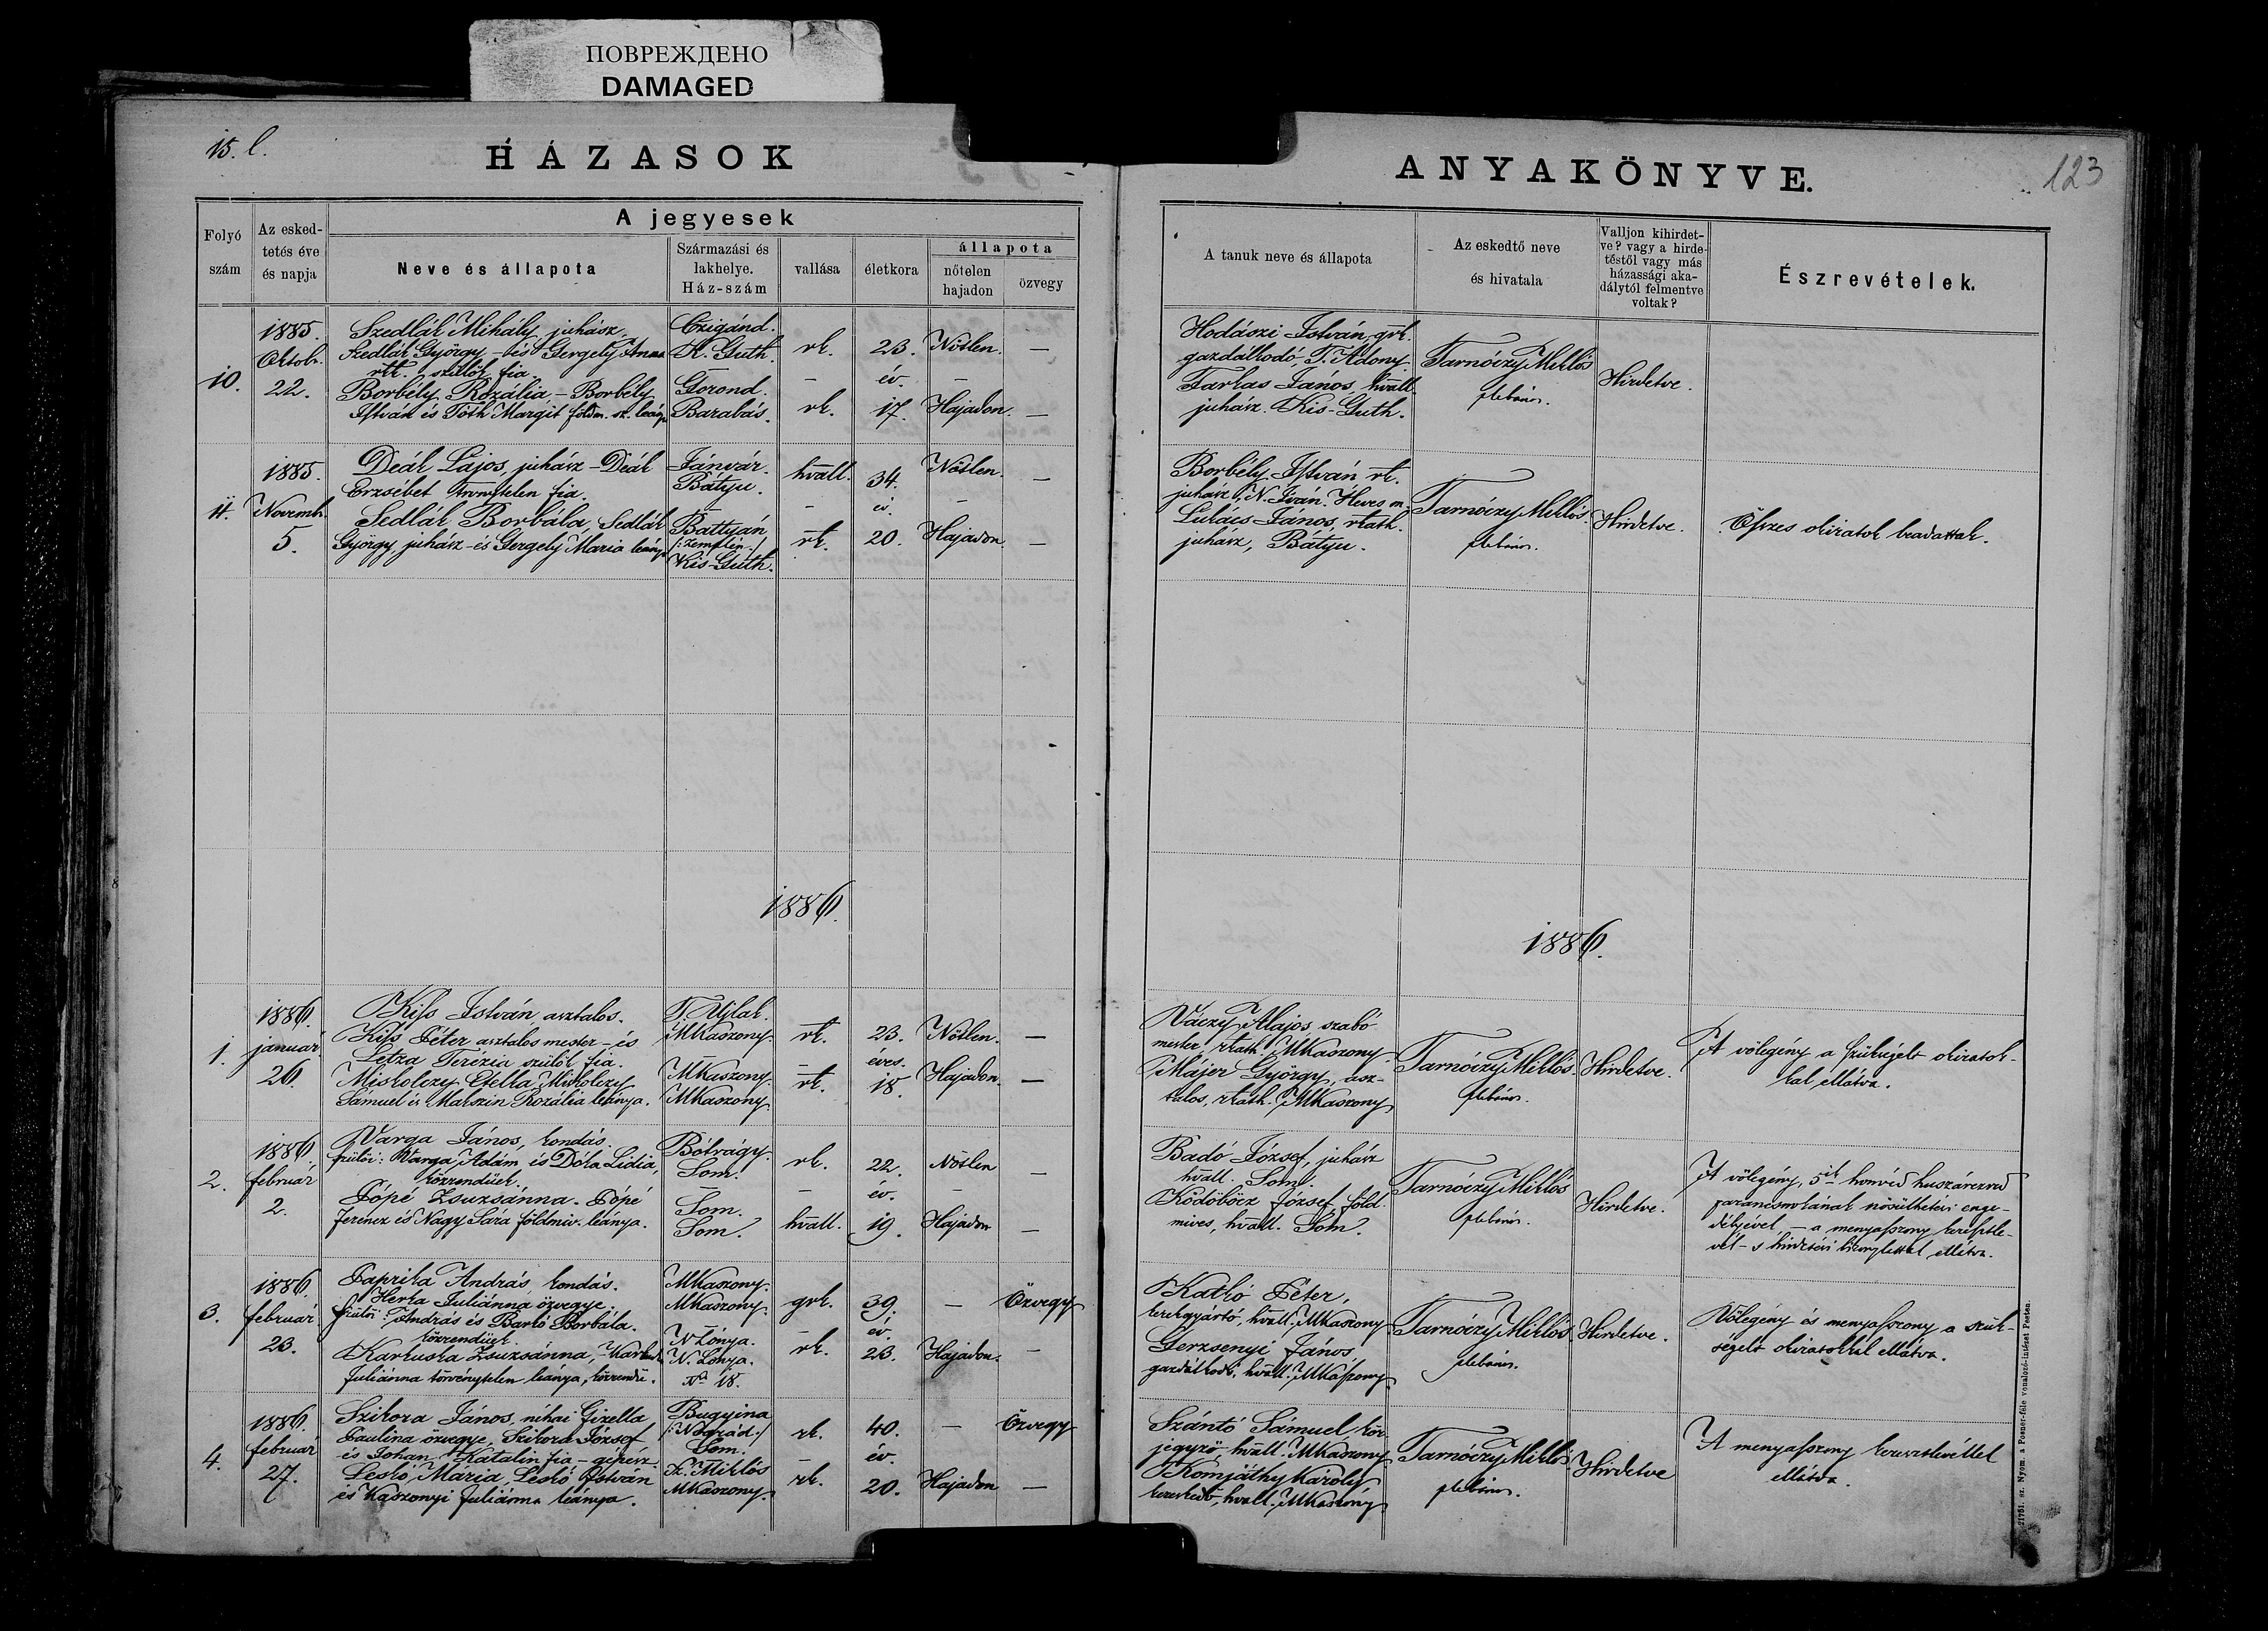 ПОВРЕЖДЕНО
DAMAGED
15. l.
HÁZASOK
ANYAKÖNYVE.
123
Folyó
szám
Az esked-
tetés éve
és napja
A jegyesek
Neve és állapota
Származási és
lakhelye.
Ház-szám
vallása
életkora
állapota
nőtelen
hajadon
özvegy
A tanuk neve és állapota
Az eskedtő neve
és hivatala
Valljon kihirdet-
ve? vagy a hirde-
téstől vagy más
házassági aka-
dálytól felmentve
voltak?
Észrevételek.
10.
1885.
Oktob.
22.
Szedlák Mihály juhász
Szedlák György és Gergely Anna
rk. szülők fia.
Borbély Rozália – Borbély
István és Tóth Margit földm. leánya
Czigánd.
K. Guth.
Gorond.
Barabás.
rk.
rk.
23.
év.
17.
Nőtlen. —
Hajadon. —
Hodászi István, grk.
gazdálkodó, T. Adony.
Farkas János hvall.
juhász. Kis-Guth.
Tarnóczy Miklós
plébános.
Hirdetve.
11.
1885.
Novemb.
5.
Deák Lajos, juhász – Deák
Erzsébet fia.
Sedlák Borbála, Sedlák
György juhász és Gergely Maria leánya
Jánvár.
Bátyu.
Battyán
/:Zemplén:/
Kis-Guth.
hvall.
rk.
34.
év.
20.
Nőtlen. —
Hajadon. —
Borbély István rk.
juhász, N. Iván. Heves m.
Lukács János, rkath.
juhász, Bátyu.
Tarnóczy Miklós.
plébános.
Hirdetve.
Összes okiratok beadattak.
1886.
1886.
1.
1886.
január
26.
Kiss István asztalos.
Kiss Péter asztalos mester – és
Letza Terézia szülők fia.
Miskolczy Etelka, Miskolczy
Sámuel és Makszin Rozália leánya.
T. Ujlak.
MKaszony.
MKaszony.
MKaszony.
rk.
rk.
23.
éves.
18.
Nőtlen. —
Hajadon. —
Váczy Alajos szabó
mester, rkath. MKaszony.
Májer György, asz-
talos, rkath. MKaszony.
Tarnóczy Miklós.
plébános.
Hirdetve.
A vőlegény a szükséges okiratok-
kal ellátva.
2.
1886
február
2.
Varga János, kondás.
szülői: Varga Ádám és Dóka Lidia,
közrendüek.
Pópé Zsuzsánna. Pópé
Ferencz és Nagy Sára földmiv. leánya.
Bótrágy.
Som.
Som.
Som.
rk.
hvall.
22.
év.
19.
Nőtlen —
Hajadon —
Badó József, juhász
hvall. Som.
Ködöböcz József, föld-
mives, hvall. Som.
Tarnóczy Miklós
plébános.
Hirdetve.
A vőlegény, 5ik honvéd huszárezred
parancsnokának nősülhetési enge-
délyével – a menyasszony keresztle-
vél – s hirdetési bizonylattal ellátva.
3.
1886.
február
23.
Paprika András, kondás.
Herka Juliánna özvegye.
szülői: András és Barkó Borbála.
közrendüek.
Karkuska Zsuzsánna,
Juliánna törvénytelen leánya, közrendü.
MKaszony.
MKaszony.
N Lónya.
N. Lónya.
No 18.
grk.
rk.
39.
év.
23.
— Özvegy
Hajadon. —
Katkó Péter,
kerékgyártó, hvall. MKaszony
Gerzsenyi János
gazdálkodó, hvall. MKászony.
Tarnóczy Miklós
plébános.
Hirdetve.
Vőlegény és menyasszony a szük-
séges okiratokkal ellátva.
4.
1886.
február
27.
Szikora János, néhai Gizella
Paulina özvegye, Szikora József
és Johan Katalin fia – gépész.
Leskó Mária, Leskó István
és Kaszonyi Juliánna leánya.
Bugyina
/:Nógrád:/
Som.
Sz. Miklós
MKaszony.
rk.
rk.
40.
év.
20.
— Özvegy
Hajadon —
Szántó Sámuel, kör-
jegyző hvall. MKaszony
Komjáthy Károly
kereskedő, hvall. MKaszony.
Tarnóczy Miklós
plébános.
Hirdetve
A menyasszony keresztlevéllel
ellátva.
21751. sz. Nyom. a Posner-féle vonalozó-intézet Pesten.